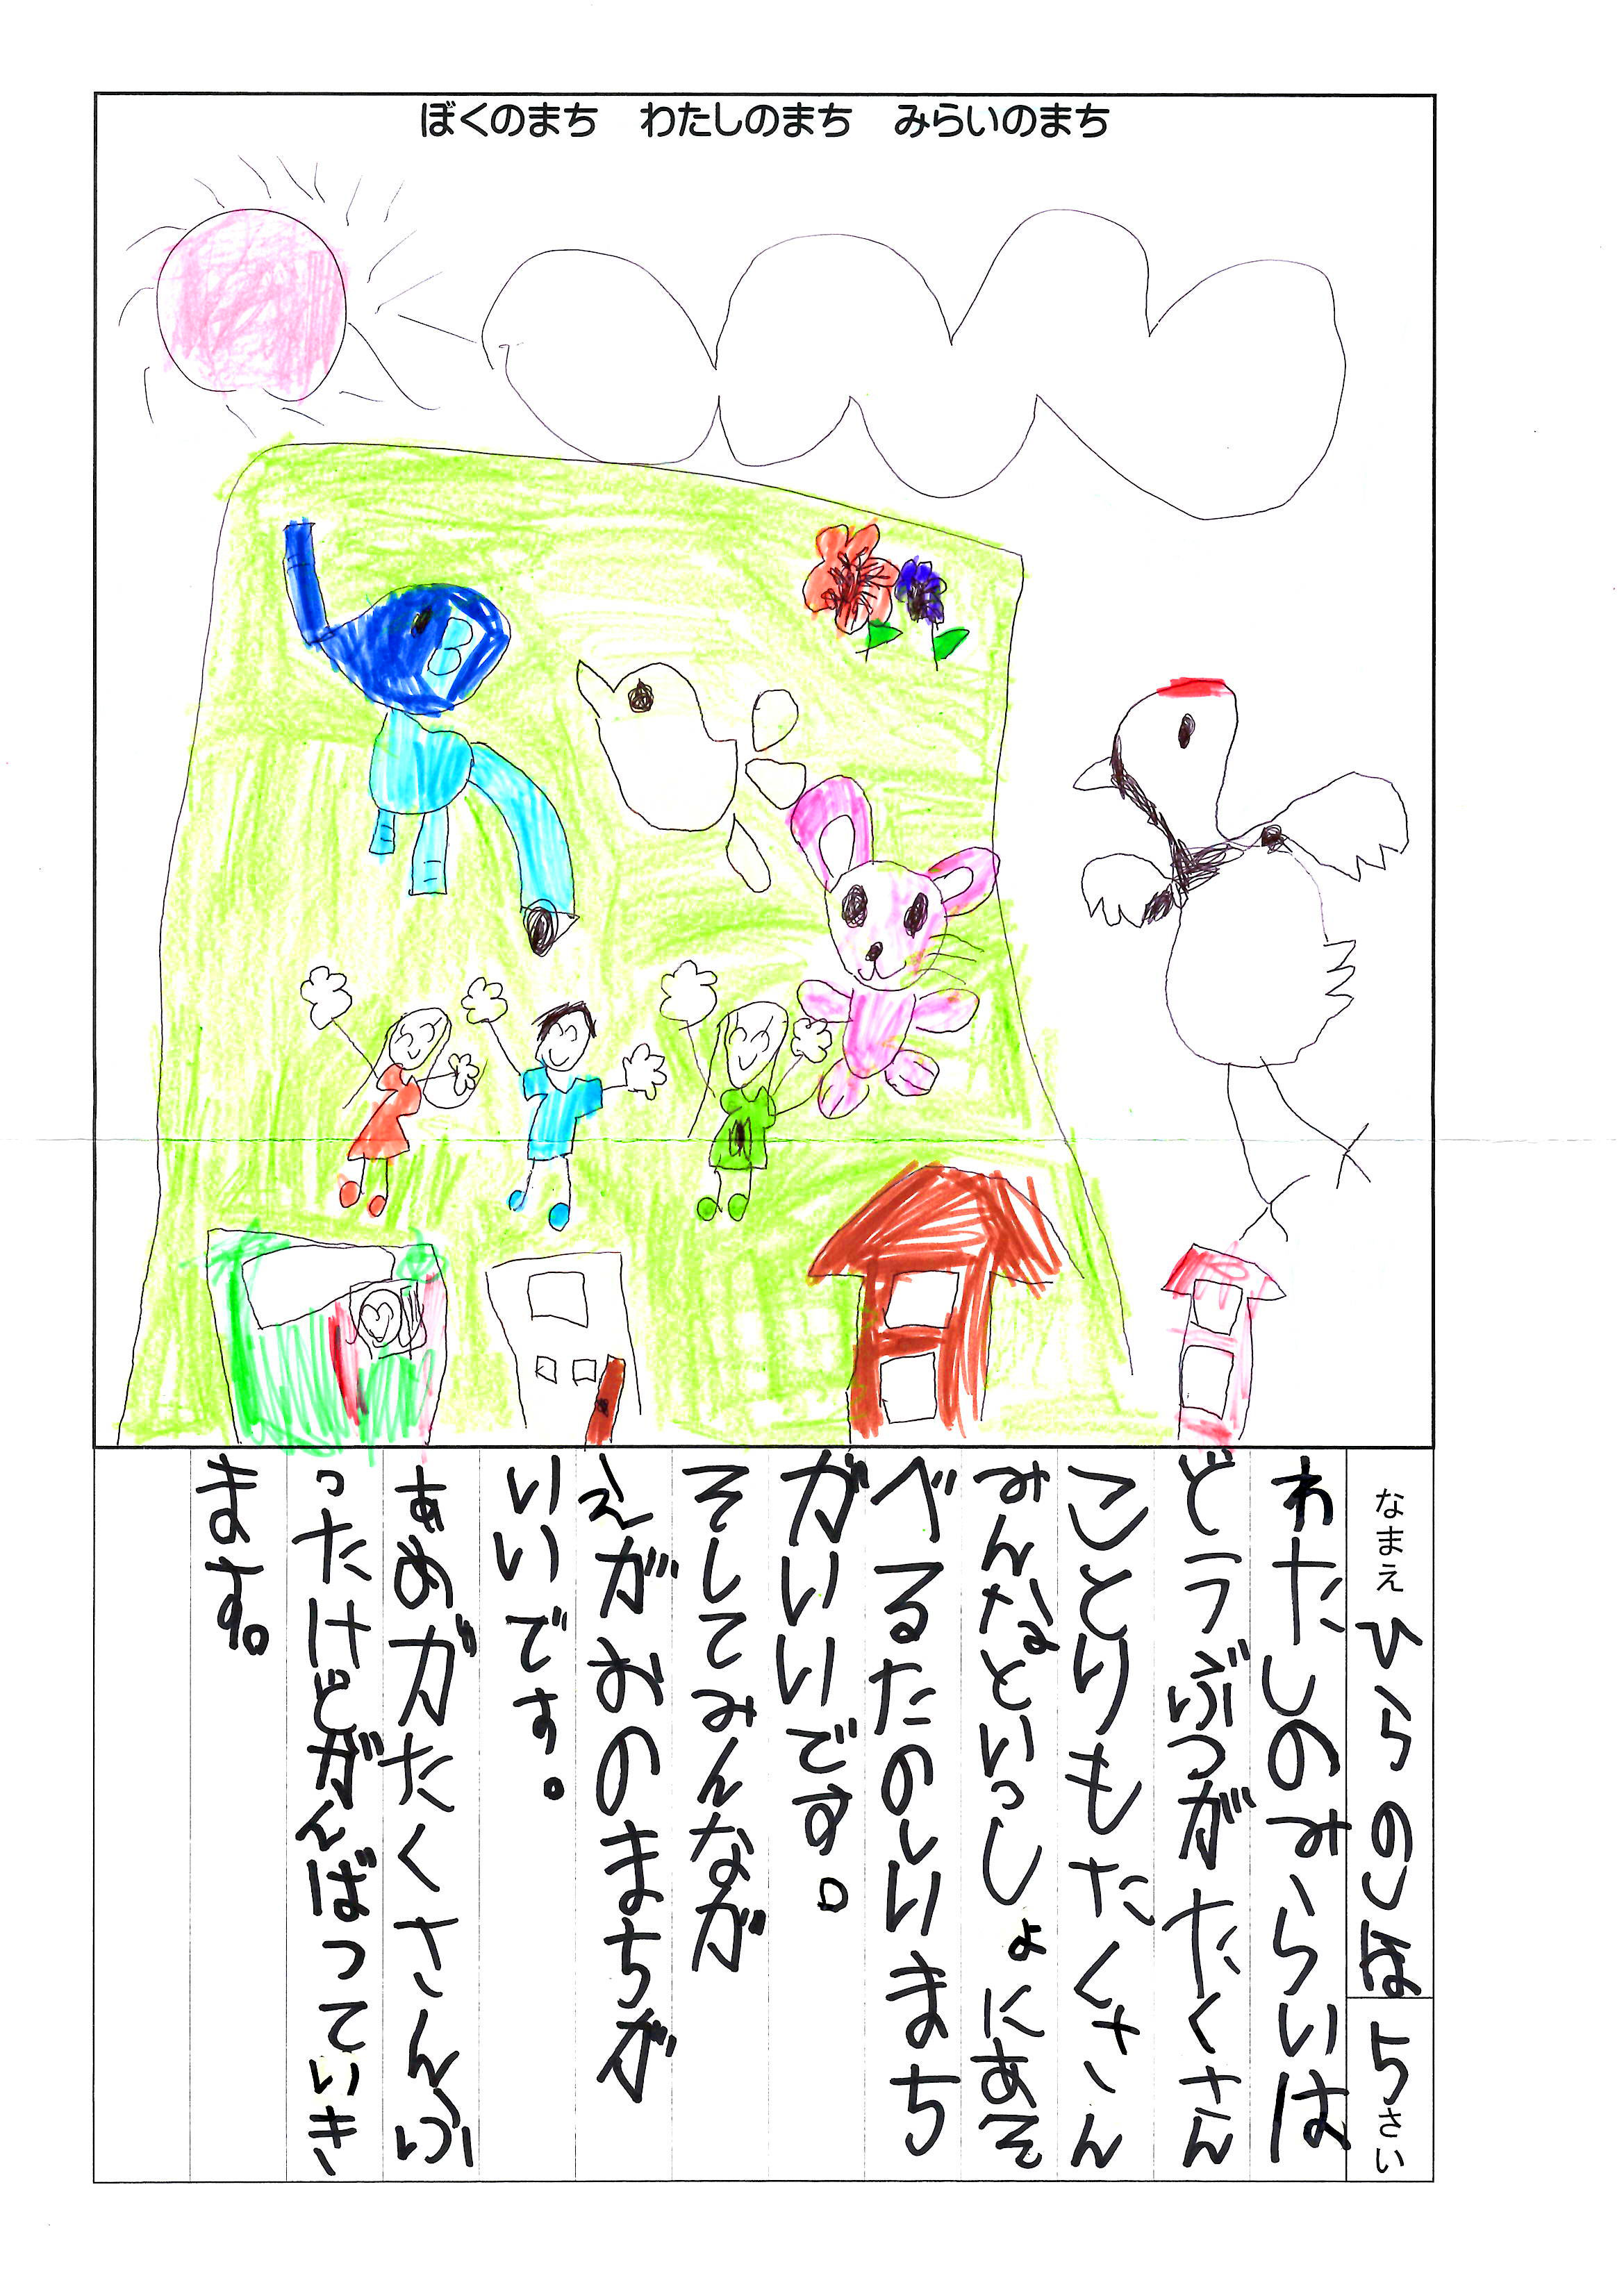 ぼくのまち　わたしのまち　みらいのまち
なまえ ひらのしほ 5さい
わたしのみらいは
どうぶつがたくさん
ことりもたくさん
みんなといっしょにあそ
べるたのしいまち
がいいです。
そしてみんなが
えがおのまちが
いいです。
あめがたくさんふ
ったけどがんばっていき
ます。